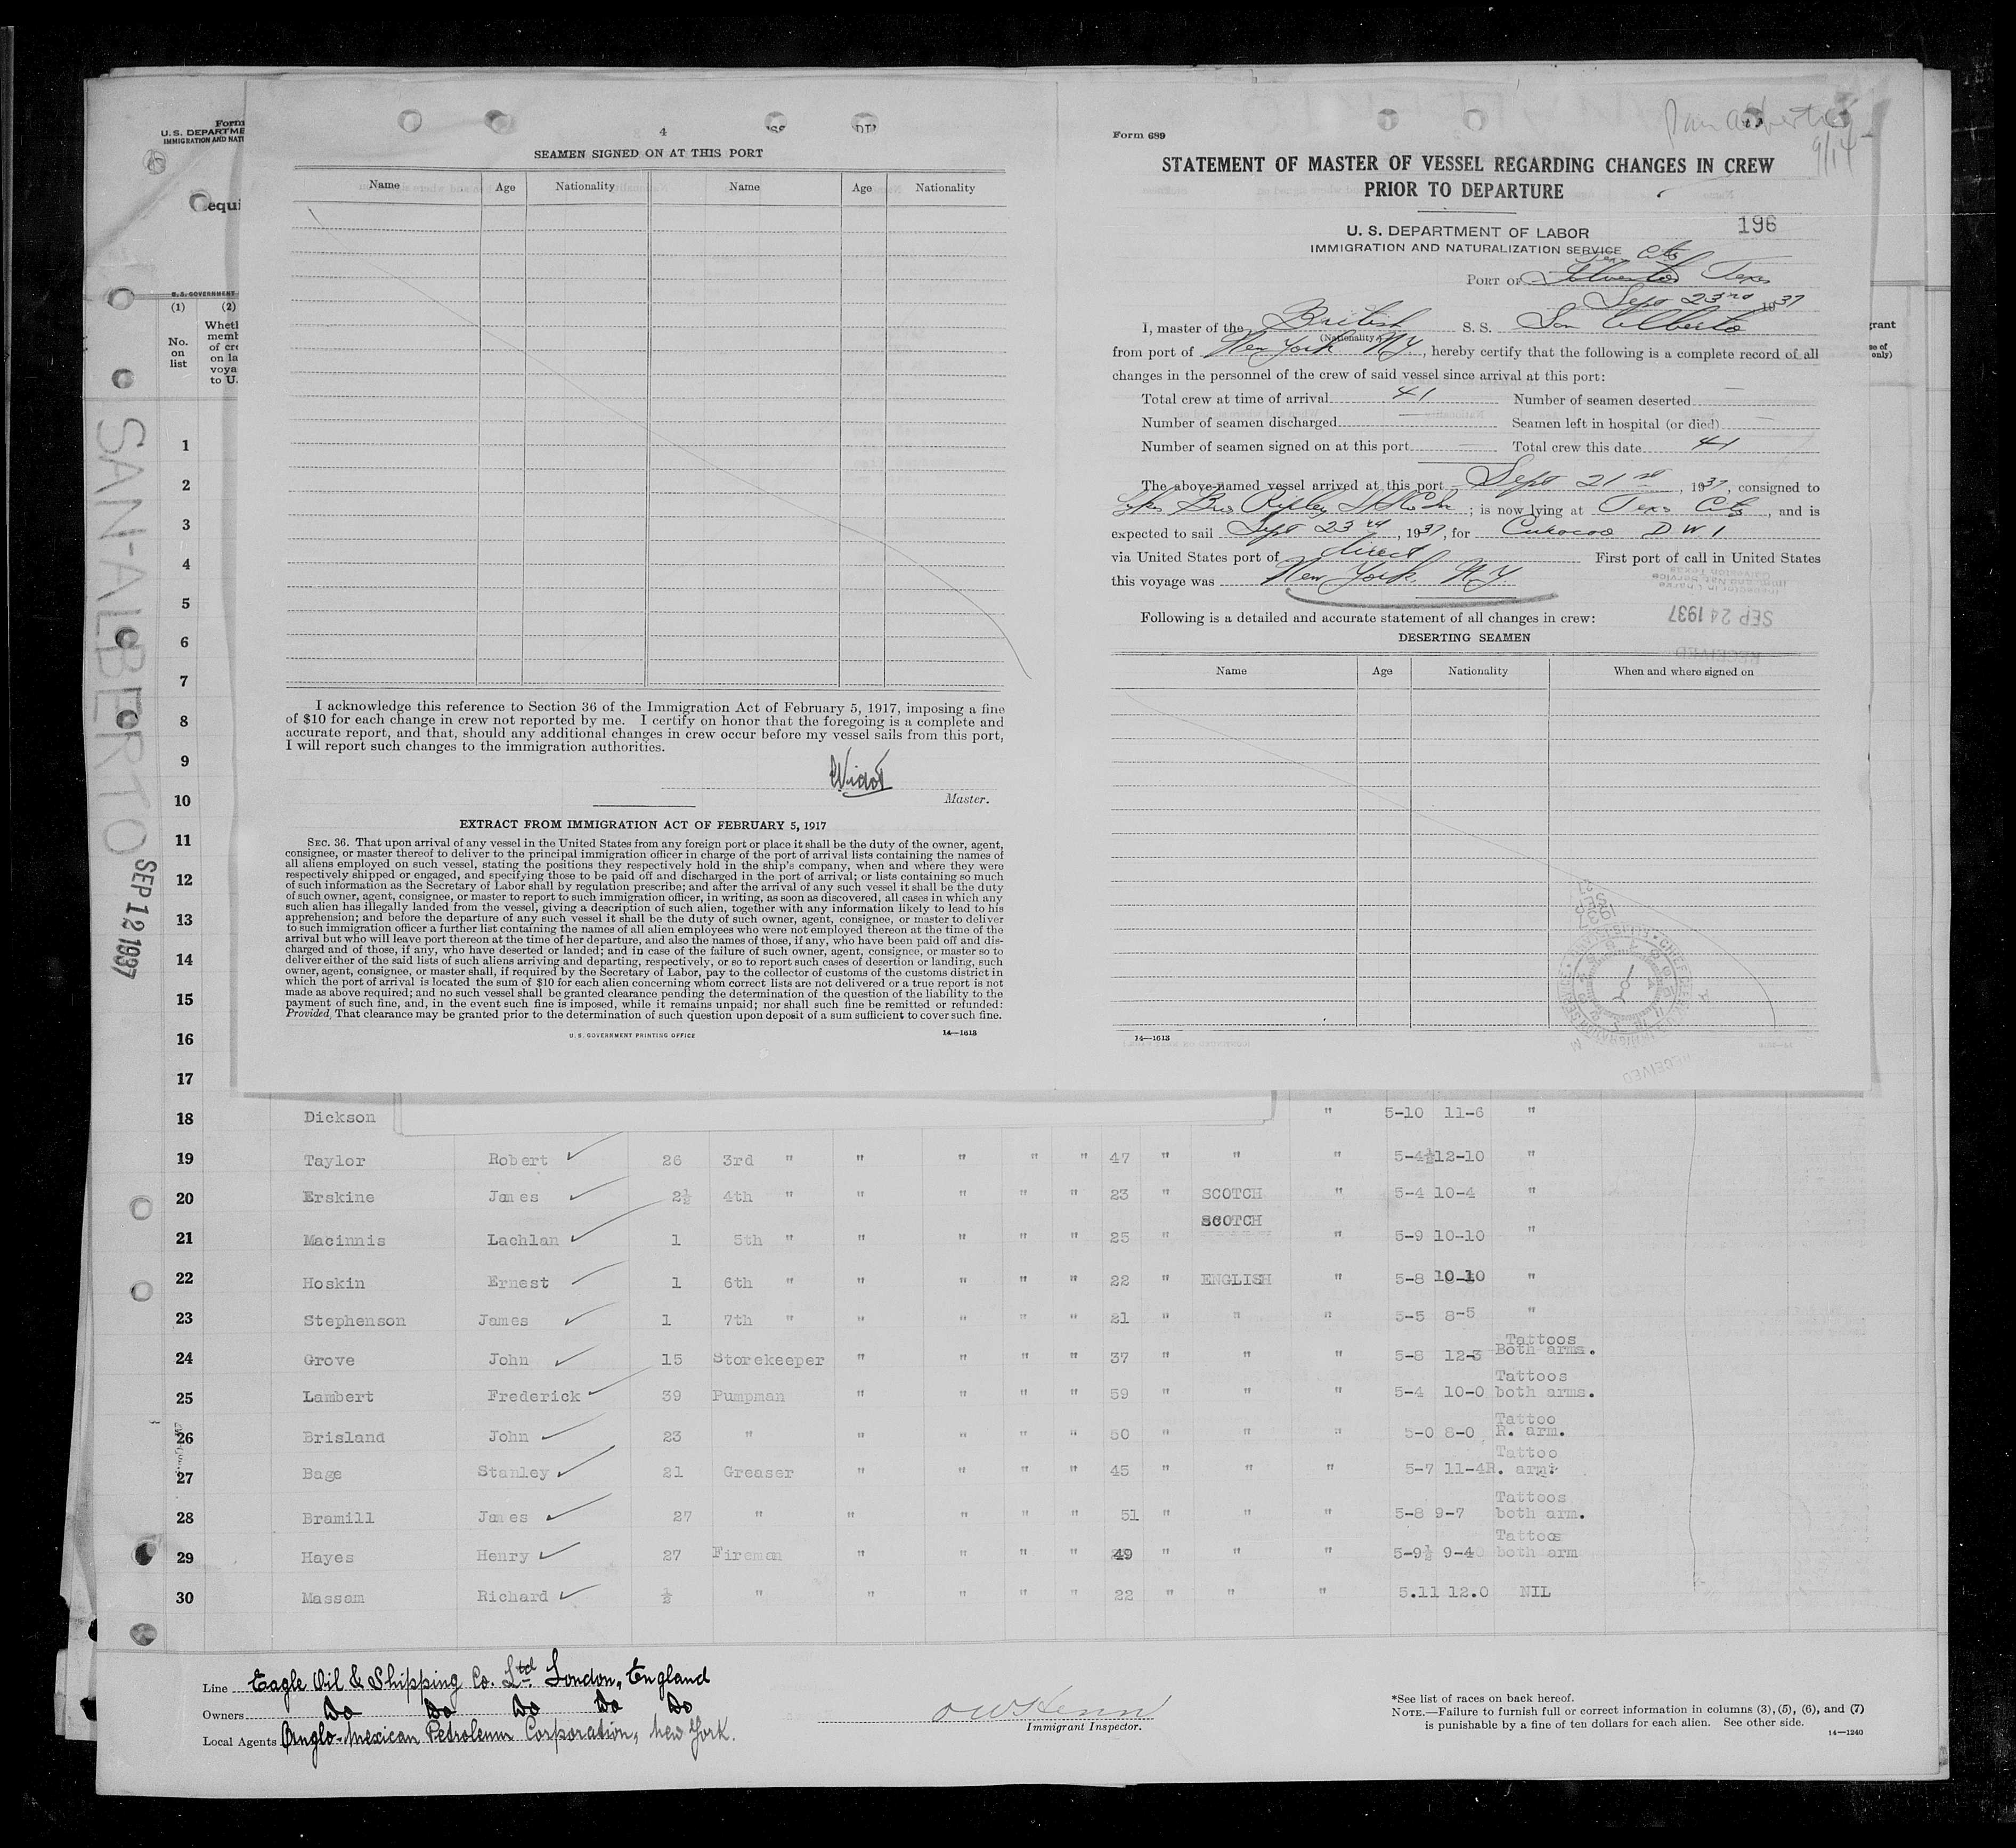 Form
U. S. DEPARTME
IMMIGRATION AND NATI
equi
U. S. GOVERNMENT
(1) (2)
No. on list
Whetl
memb
of cre
on la
voya
to U.
SAN-ALBERTO
SEP 12 1937
4
SEAMEN SIGNED ON AT THIS PORT
Name Age Nationality Name Age Nationality
I acknowledge this reference to Section 36 of the Immigration Act of February 5, 1917, imposing a fine
of $10 for each change in crew not reported by me. I certify on honor that the foregoing is a complete and
accurate report, and that, should any additional changes in crew occur before my vessel sails from this port,
I will report such changes to the immigration authorities.
Master.
EXTRACT FROM IMMIGRATION ACT OF FEBRUARY 5, 1917
SEC. 36. That upon arrival of any vessel in the United States from any foreign port or place it shall be the duty of the owner, agent,
consignee, or master thereof to deliver to the principal immigration officer in charge of the port of arrival lists containing the names of
all aliens employed on such vessel, stating the positions they respectively hold in the ship's company, when and where they were
respectively shipped or engaged, and specifying those to be paid off and discharged in the port of arrival; or lists containing so much
of such information as the Secretary of Labor shall by regulation prescribe; and after the arrival of any such vessel it shall be the duty
of such owner, agent, consignee, or master to report to such immigration officer, in writing, as soon as discovered, all cases in which any
such alien has illegally landed from the vessel, giving a description of such alien, together with any information likely to lead to his
apprehension; and before the departure of any such vessel it shall be the duty of such owner, agent, consignee, or master to deliver
to such immigration officer a further list containing the names of all alien employees who were not employed thereon at the time of the
arrival but who will leave port thereon at the time of her departure, and also the names of those, if any, who have been paid off and dis-
charged and of those, if any, who have deserted or landed; and in case of the failure of such owner, agent, consignee, or master so to
deliver either of the said lists of such aliens arriving and departing, respectively, or so to report such cases of desertion or landing, such
owner, agent, consignee, or master shall, if required by the Secretary of Labor, pay to the collector of customs of the customs district in
which the port of arrival is located the sum of $10 for each alien concerning whom correct lists are not delivered or a true report is not
made as above required; and no such vessel shall be granted clearance pending the determination of the question of the liability to the
payment of such fine, and, in the event such fine is imposed, while it remains unpaid; nor shall such fine be remitted or refunded:
Provided, That clearance may be granted prior to the determination of such question upon deposit of a sum sufficient to cover such fine.
U. S. GOVERNMENT PRINTING OFFICE 14—1613
Form 689
9/14
STATEMENT OF MASTER OF VESSEL REGARDING CHANGES IN CREW
PRIOR TO DEPARTURE
196
U. S. DEPARTMENT OF LABOR
IMMIGRATION AND NATURALIZATION SERVICE
PORT OF Texas City Texas
Sept 23rd 1937
I, master of the British S. S. San Alberto
(Nationality)
from port of New York NY, hereby certify that the following is a complete record of all
changes in the personnel of the crew of said vessel since arrival at this port:
Total crew at time of arrival 41 Number of seamen deserted —
Number of seamen discharged — Seamen left in hospital (or died) —
Number of seamen signed on at this port — Total crew this date 41
The above-named vessel arrived at this port Sept 21st, 1937, consigned to
Lykes Bros Ripley SS Co Inc; is now lying at Texas City, and is
expected to sail Sept 23rd, 1937, for Curocoa D W I
via United States port of direct First port of call in United States
this voyage was New York NY
SEP 24 1937
RECEIVED
Following is a detailed and accurate statement of all changes in crew:
DESERTING SEAMEN
Name Age Nationality When and where signed on
14—1613
grant
se of
only)
1
2
3
4
5
6
7
8
9
10
11
12
13
14
15
16
17
18 Dickson " 5-10 11-6 "
19 Taylor Robert 26 3rd " " " " " 47 " " " 5-4½ 12-10 "
20 Erskine James 2½ 4th " " " " " 23 " SCOTCH " 5-4 10-4 "
21 Macinnis Lachlan 1 5th " " " " " 25 " SCOTCH " 5-9 10-10 "
22 Hoskin Ernest 1 6th " " " " " 22 " ENGLISH " 5-8 10-10 "
23 Stephenson James 1 7th " " " " " 21 " " " 5-5 8-5 "
24 Grove John 15 Storekeeper " " " " 37 " " " 5-8 12-3 Tattoos Both arms.
25 Lambert Frederick 39 Pumpman " " " " 59 " " " 5-4 10-0 Tattoos both arms.
26 Brisland John 23 " " " " " 50 " " " 5-0 8-0 Tattoo R. arm.
27 Bage Stanley 21 Greaser " " " " 45 " " " 5-7 11-4 Tattoo R. arm.
28 Bramill James 27 " " " " " 51 " " " 5-8 9-7 Tattoos both arm.
29 Hayes Henry 27 Fireman " " " " 49 " " " 5-9½ 9-4 Tattoos both arm
30 Massam Richard ½ " " " " " 22 " " " 5.11 12.0 NIL
Line Eagle Oil & Shipping Co. Ltd London, England
Owners Do Do Do Do Do
Local Agents Anglo-Mexican Petroleum Corporation, New York.
Immigrant Inspector.
*See list of races on back hereof.
NOTE.—Failure to furnish full or correct information in columns (3), (5), (6), and (7)
is punishable by a fine of ten dollars for each alien. See other side.
14—1240